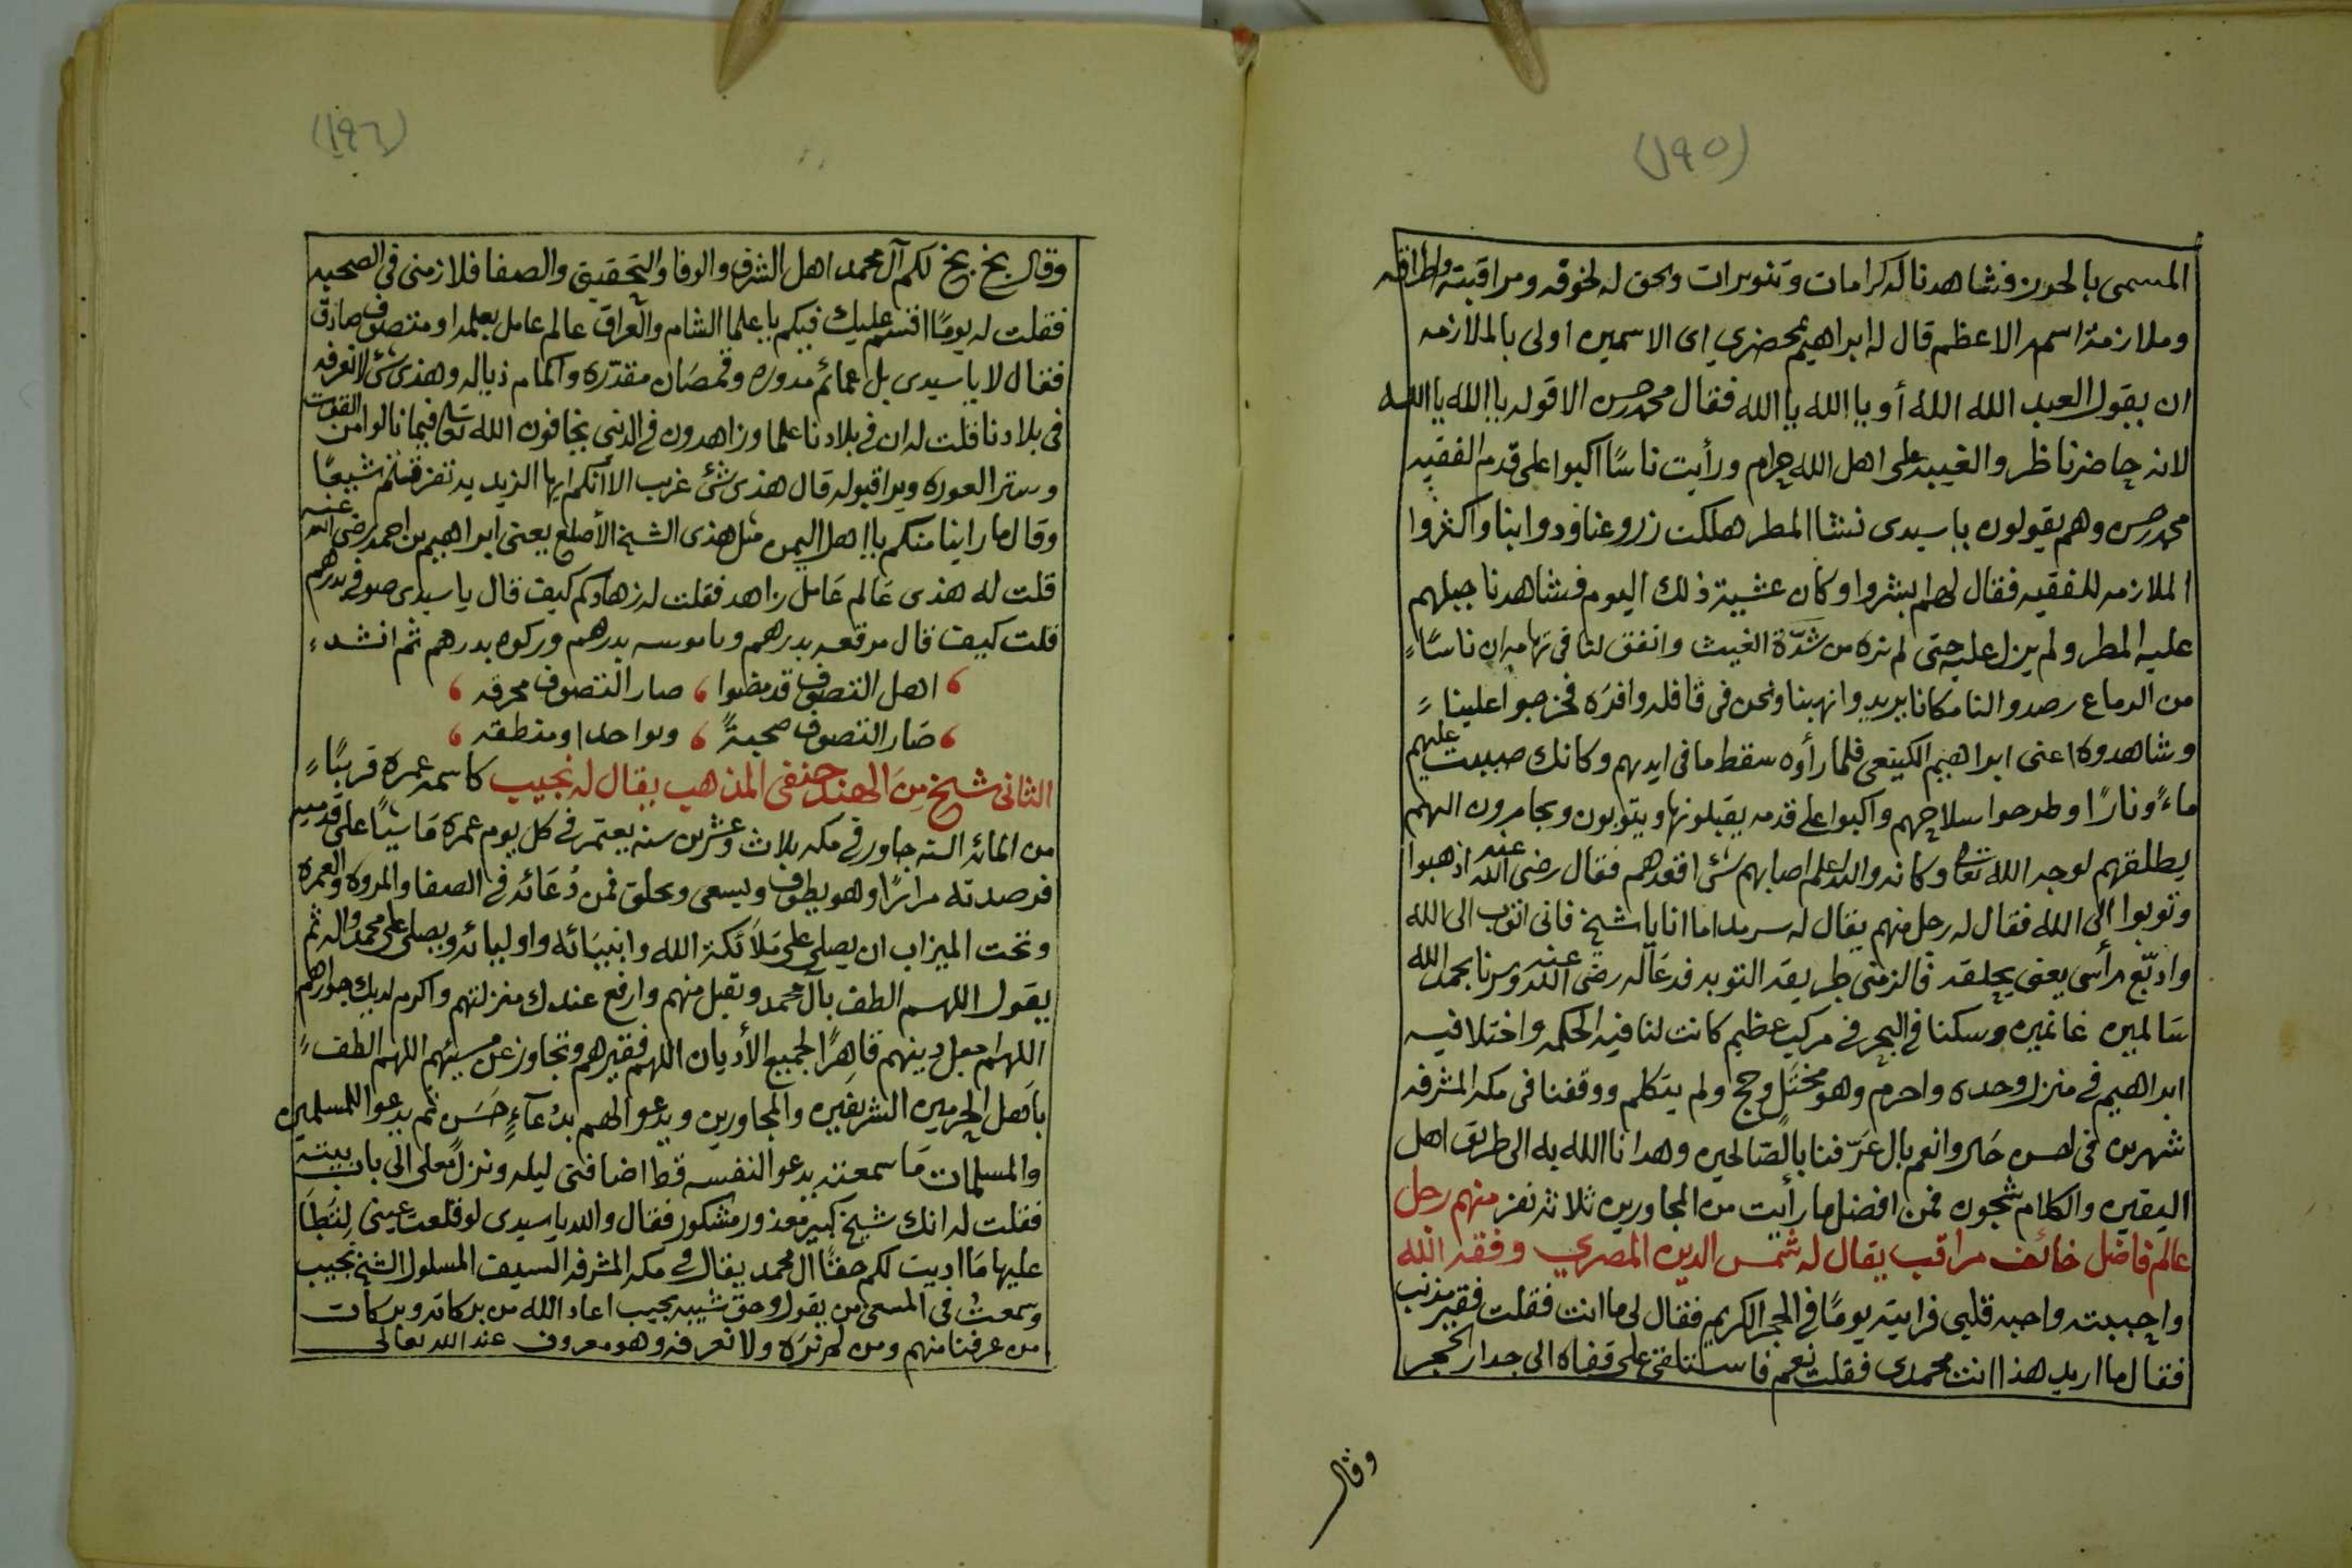 (١٩٥)
المسمى بالحون فشاهدنا له كرامات وتنويرات وحق له لخوفه ومراقبته واطراقه
وملازمة اسمه الاعظم قال له ابراهيم بمحضري اى الاسمين اولى بالملازمه
ان يقول العبد الله الله أو يا الله يا الله فقال محمد حسن الا قوله يا الله يا الله
لانه حاضر ناظر والغيبه على اهل الله حرام ورأيت ناسًا اكبوا على قدم الفقيه
محمد حسن وهم يقولون يا سيدى نشا المطر هلكت زروعنا ودوابنا واكثروا
الملازمه للفقيه فقال لهم ابشروا وكان عشية ذلك اليوم فشاهدنا جبلهم
عليه المطر ولم يزل عليه حتى لم نره من شدّة الغيث واتفق لنا فى تهامه ان ناسًا
من الدماع رصدوا لنا مكانا يريدوا نهبنا ونحن فى قافله وافره فخرجوا علينا
وشاهدوه اعنى ابراهيم الكينعى فلما رأوه سقط ما فى ايديهم وكانك صببت عليهم
ماءً ونارًا وطرحوا سلاحهم واكبوا على قدمه يقبلونها ويتوبون ويجابرون اليهم
يطلقهم لوجه الله تعالى وكانه والله اعلم اصابهم شئ اقعدهم فقال رضى الله عنه اذهبوا
وتوبوا الى الله فقال له رجل منهم يقال له سرمد اما انا يا شيخ فانى اتوب الى الله
وادبّع رأسى يعنى يحلقه فالزمنى طريقة التوبه فدعَا له رضى الله عنه وسرنا بحمد الله
سَالمين غانمين وسكنا فى البحر فى مركب عظيم كانت لنا فيه الحكمه واختلا فيه
ابراهيم فى منزل وحده واحرم وهو مختَلٍ وحج ولم يتكلم ووقفنا فى مكه المشرفه
شهرين فى احسن حَال وانعم بال عَرّفنا بالصّالحين وهدانا الله به الى طريق اهل
اليقين والكلام شجون فمن افضل ما رأيت من المجاورين ثلاثة نفر منهم رجل
عالم فاضل خائف مراقب يقال له شمس الدين المصري وفقه الله
واحببته واحبه قلبى فرأيته يومًا فى الحجر الكريم فقال لى ما انت فقلت فقير مذنب
فقال ما اريد هذا انت محمدى فقلت نعم فاستلقى على قفاه الى جدار الحجر
وقال
(١٩٦)
وقال بخ بخ لكم آل محمد اهل الشرف والوفا والتحقيق والصفا فلازمنى فى الصحبه
فقلت له يومًا اقسم عليك فيكم يا علما الشام والعراق عالم عامل بعلمه او متصوف صادق
فقال لا يا سيدى بل عمائم مدوره وقمصَان مقدّره واكمام ذياله وهذى شئ لا نعرفه
فى بلادنا قلت له ان فى بلادنا علما وزاهدون فى الدنيى يخافون الله تعالى فيما نالوا من القوت
وستر العوره ويراقبوله قال هذى شئ غريب الا أنكم ايها الزيديه تفرقتم شيعًا
وقال ما راينا منكم يا اهل اليمن مثل هذى الشيخ الأصلع يعنى ابراهيم بن احمد رضى الله عنه
قلت له هذى عَالم عَامل زاهد فقلت له زهادكم كيف قال يا سيدى صوفى بدرهم
قلت كيف قال مرقعه بدرهم وباموسه بدرهم وركوه بدرهم ثم انشد
اهل التصوف قد مضوا ، صار التصوف مخرقه
صَار التصوف صحيةً ، وتواجدا ومنطقه
الثانى شيخ مِنَ الهند حنفى المذهب يقال له نجيب كاسمه عمره قريبًا
من المائه السنه جاور فى مكه ثلاث وعشرين سنه يعتمر فى كل يوم عمره مَاشيًا على قدميه
فرصدته مرارًا وهو يطوف ويسعى ويحلق فمن دُعَائه فى الصفا والمروه والعمره
وتحت الميزاب ان يصلى على مَلَائكة الله وانبيَائه واوليائه ويصلى على محمد واله ثم
يقول اللهم الطف بآل محمد وتقبل منهم وارفع عندك منزلتهم واكرم لديك جوارهم
اللهم اجعل دينهم قاهرًا لجميع الأديان اللهم فقيرهم وتجاوز عن مسيئهم اللهم الطف
بأهل الحرمين الشريفين والمجاورين ويدعوا لهم بدُعآءٍ حَسَن ثم يدعوا للمسلمين
والمسلمات مَا سمعته يدعو النفسه قط اضافنى ليله ونزل معى الى باب بيته
فقلت له انك شيخ كبير معذور مشكور فقال والله يا سيدى لو قلعت عينى لِتَطَأ
عليها مَا اديت لكم حقًا آل محمد يقال فى مكه المشرفه السيف المسلول الشيخ نجيب
وسمعتُ فى المسعى من يقول وحق شيبة نجيب اعاد الله من بركاته وبركات
من عرفنا منهم ومن لم نرَه ولا نعرفه وهو معروف عند الله تعالى